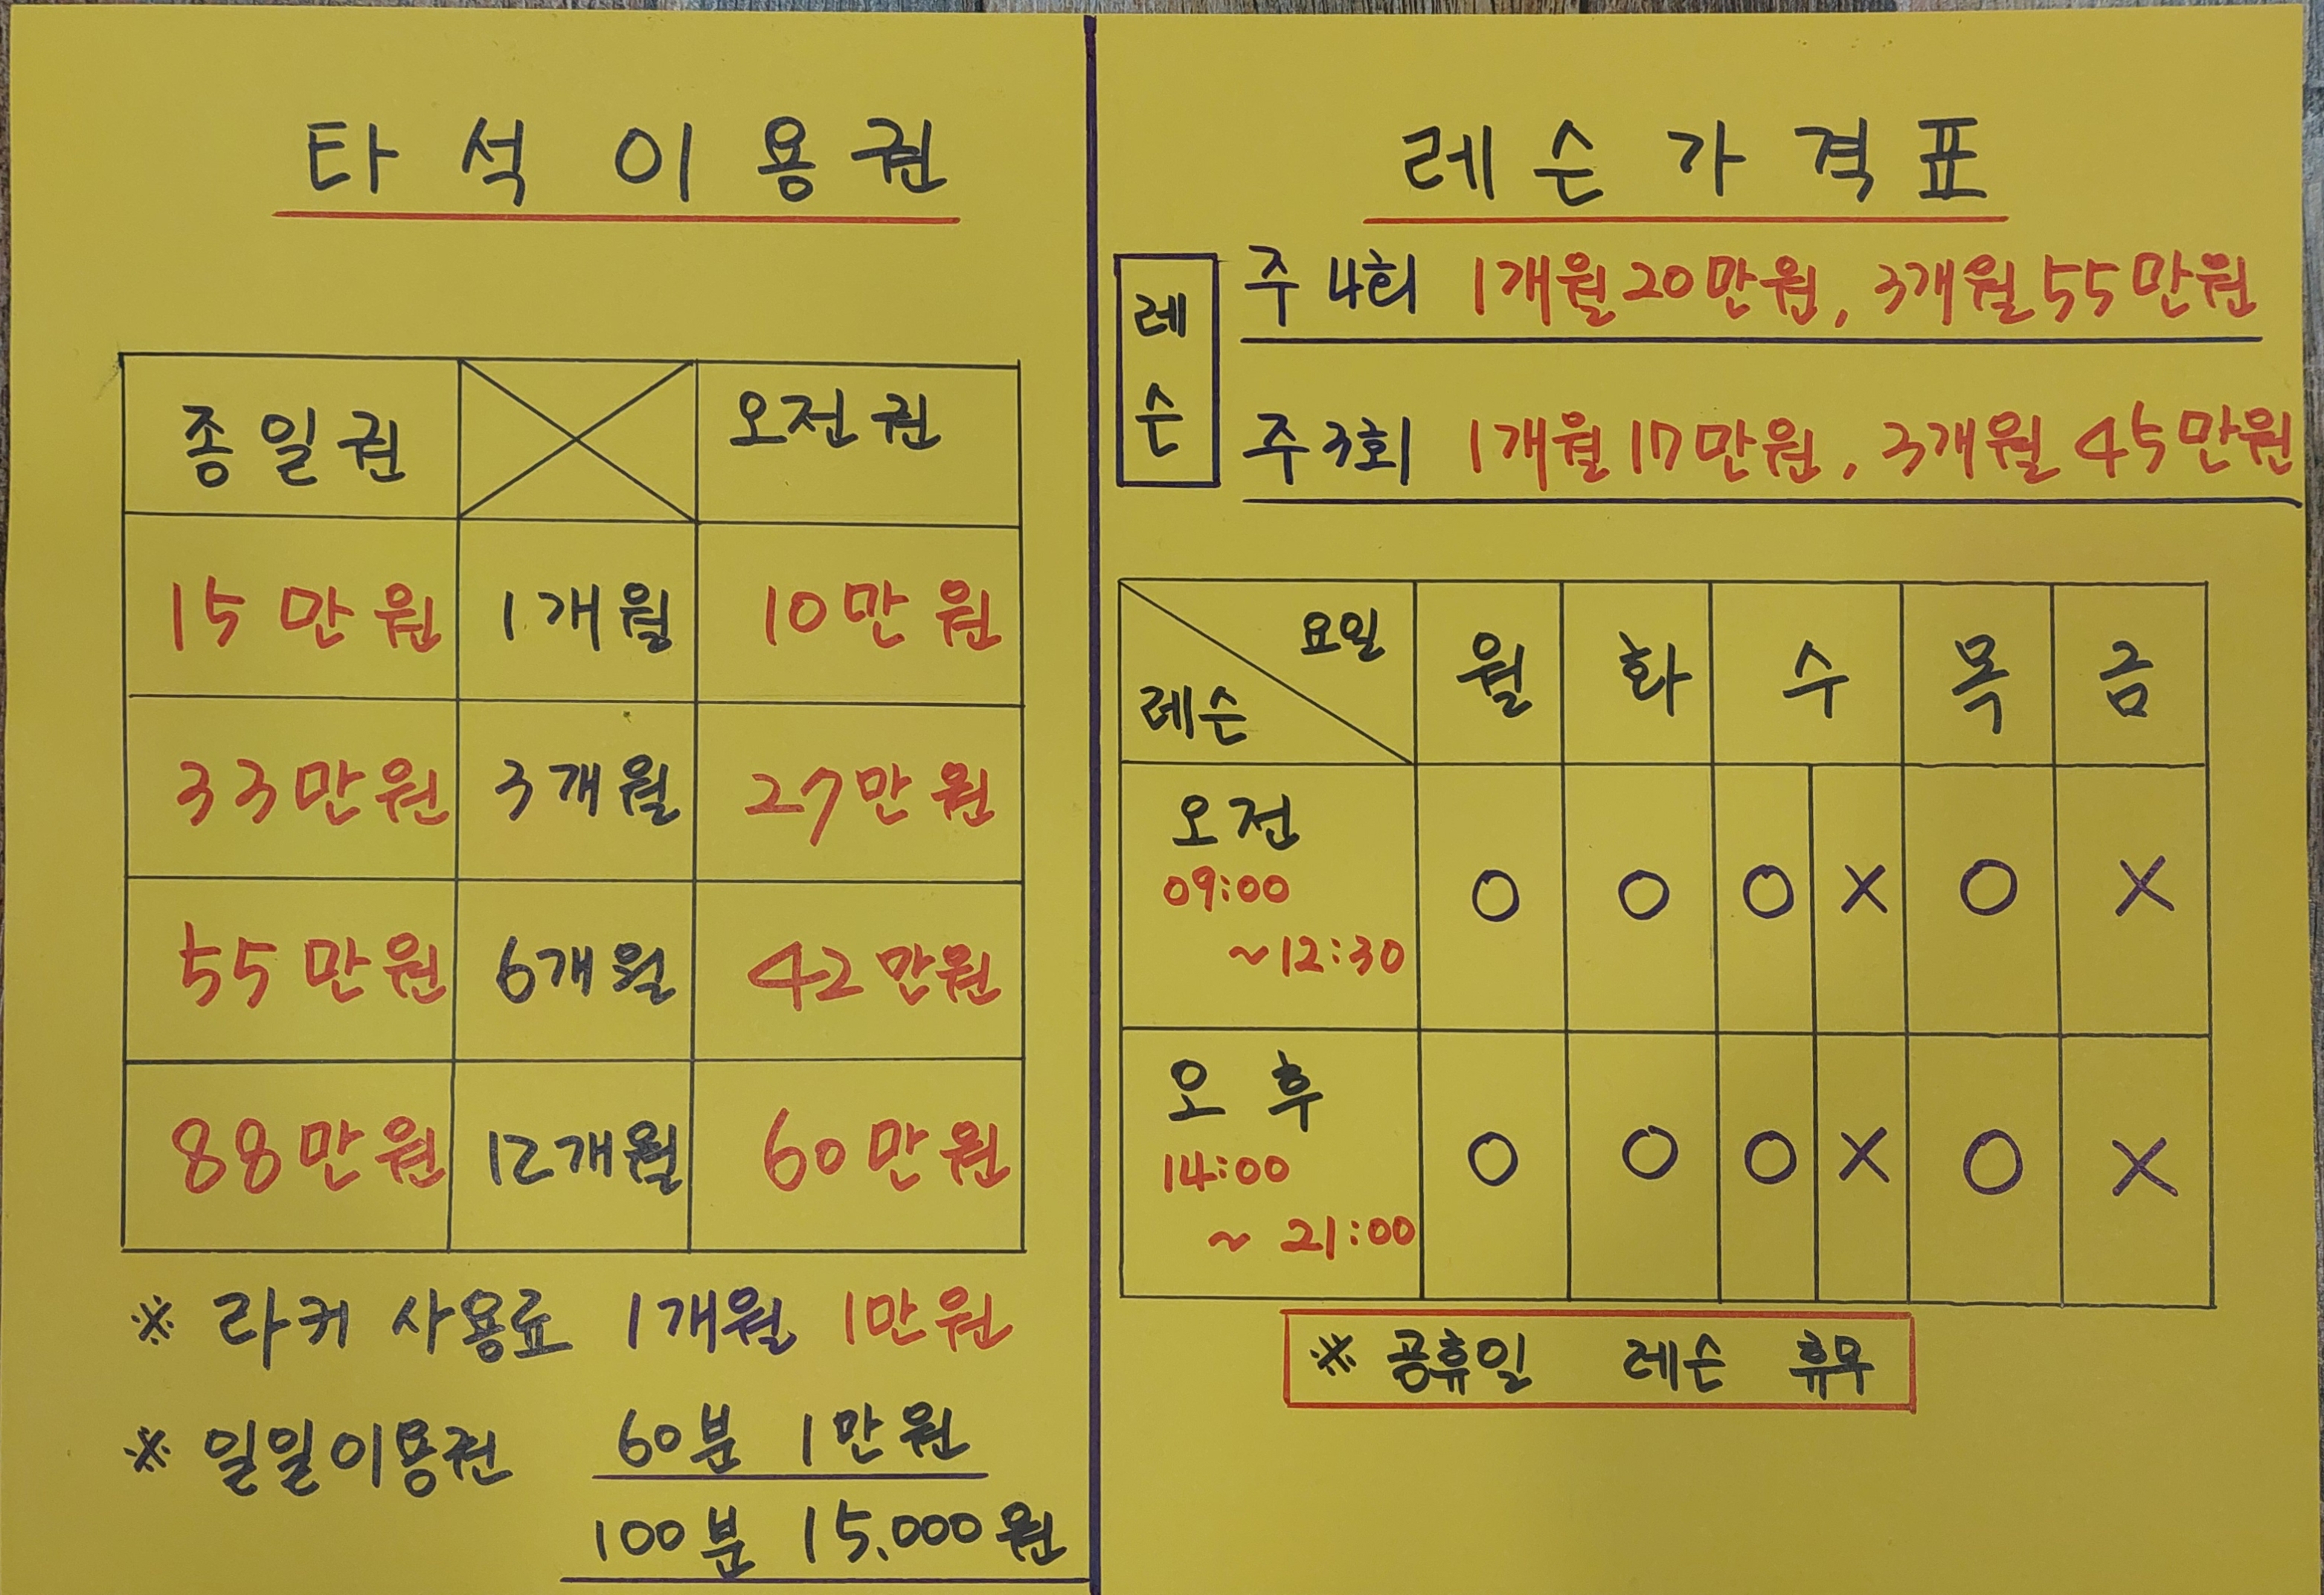 타석이용권
종일권 오전권
15만원 1개월 10만원
33만원 3개월 27만원
55만원 6개월 42만원
88만원 12개월 60만원
※ 라커 사용료 1개월 1만원
※ 일일이용권 60분 1만원
100분 15,000원
레슨가격표
레슨
주 4회 1개월 20만원, 3개월 55만원
주 3회 1개월 17만원, 3개월 45만원
요일 월 화 수 목 금
레슨
오전
09:00
~12:30
O O O X O X
오후
14:00
~ 21:00
O O O X O X
※ 공휴일 레슨 휴무